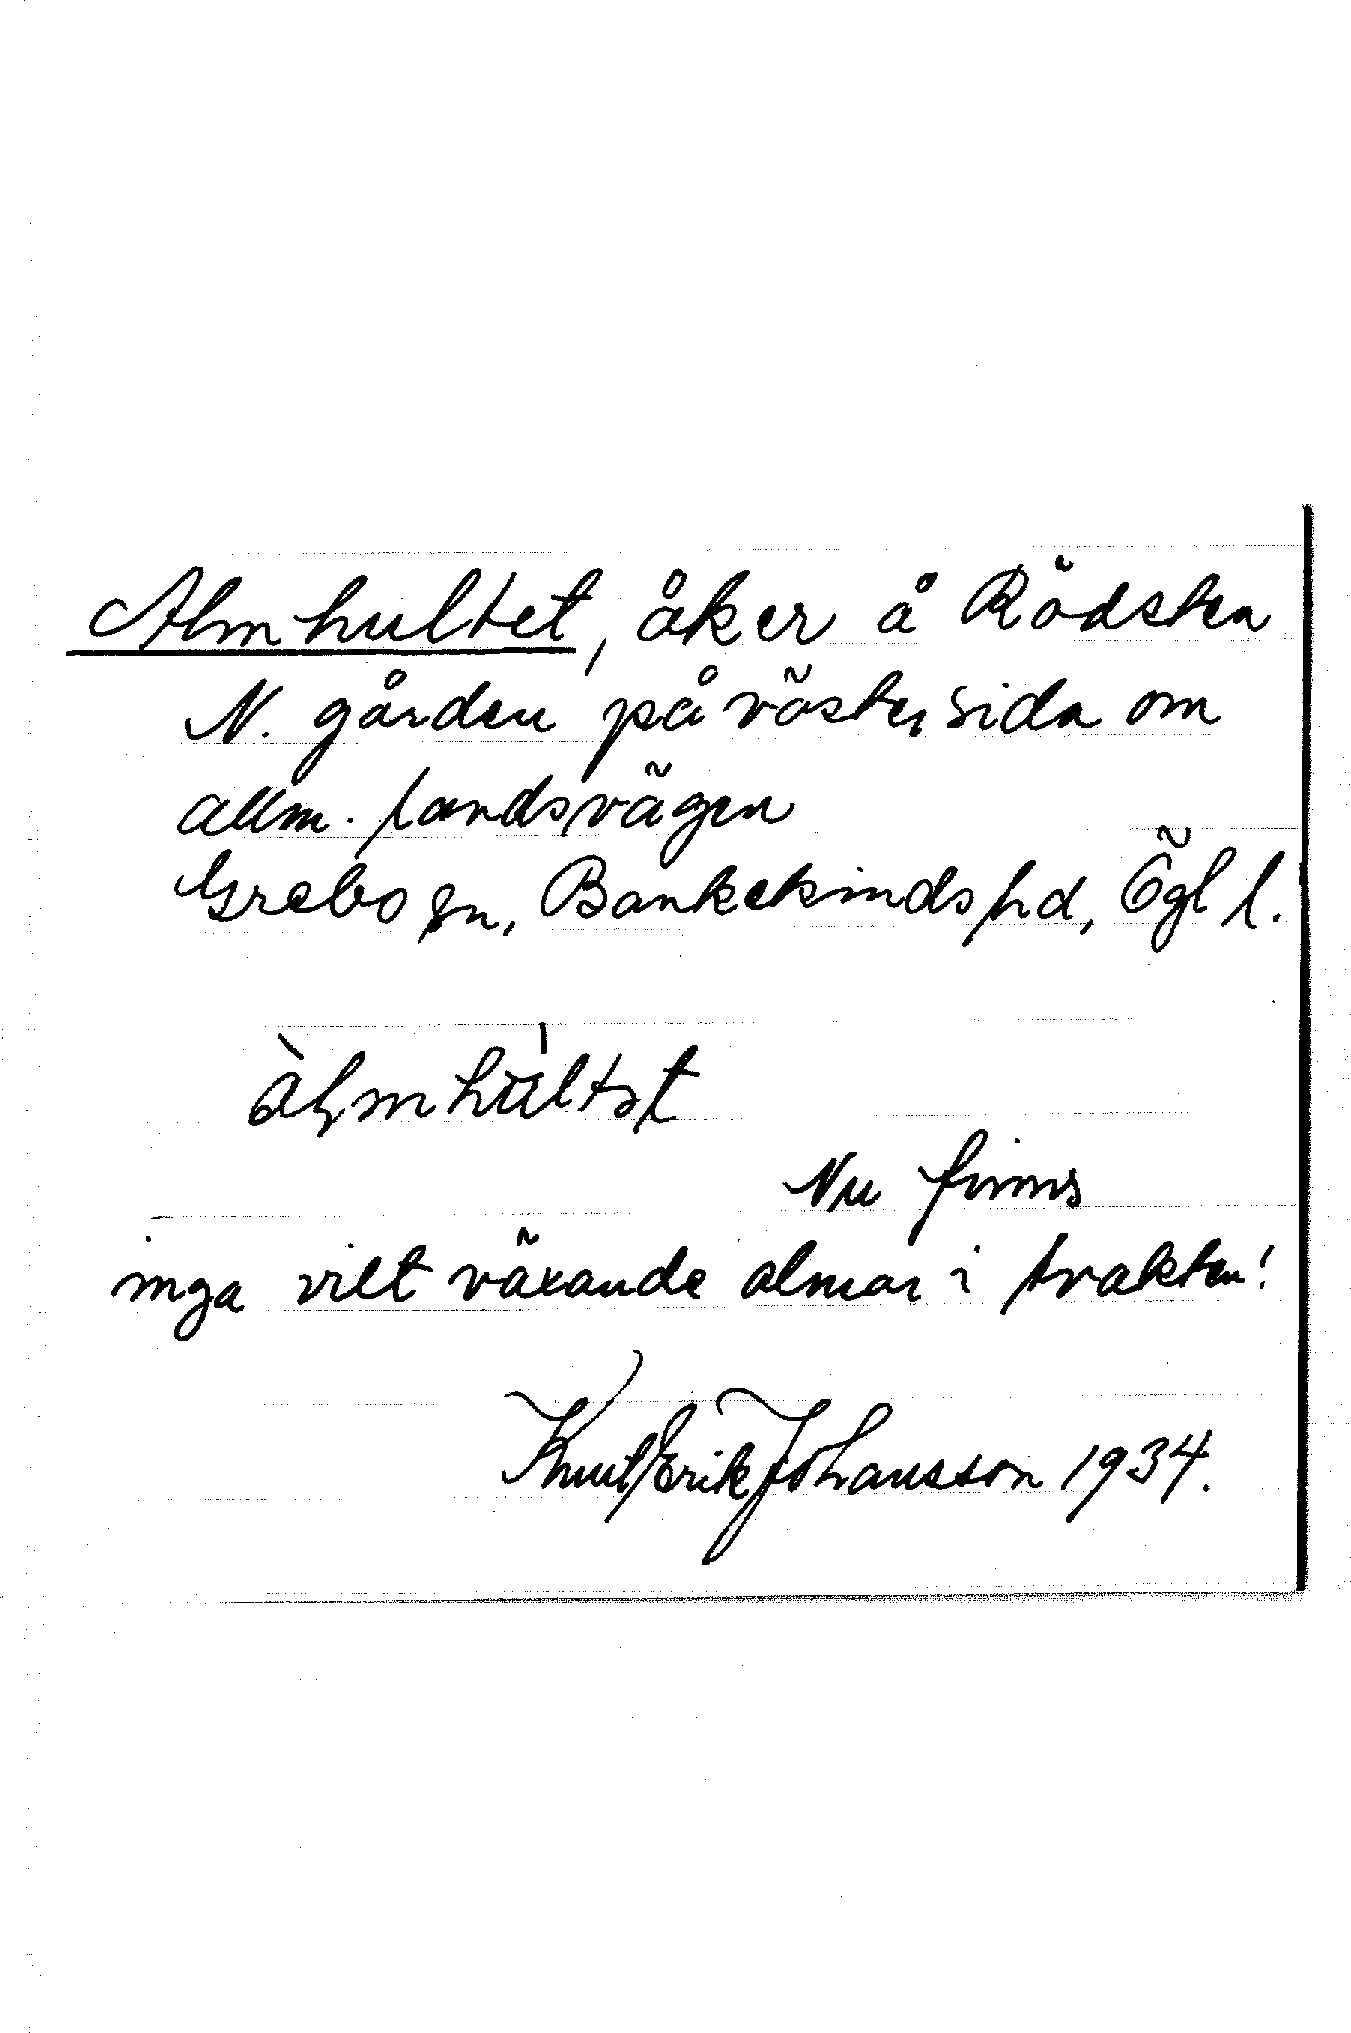 Almhultet, åker å Rödsten
N. gården på västersida om
allm. landsvägen
Grebo sn, Bankekinds hd, Ögl l.
àlmhùltət
Nu finns
inga vilt växande almar i trakten!
Knut Erik Johansson 1934.